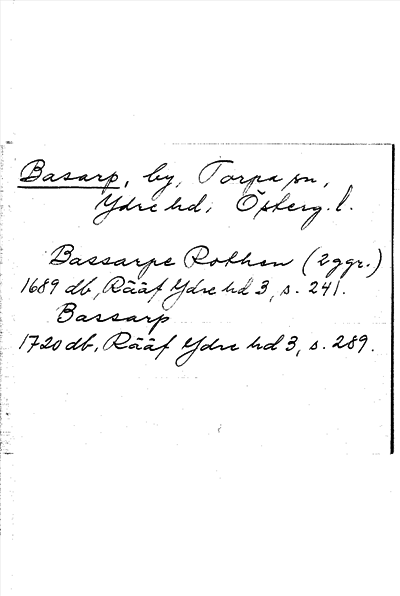 Basarp, by, Torpa sn,
Ydre hd, Österg.l.
Bassarpe Rothen (2ggr.)
1689 db, Rääf Ydre hd 3, s. 241.
Bassarp
1720 db, Rääf Ydre hd 3, s. 289.